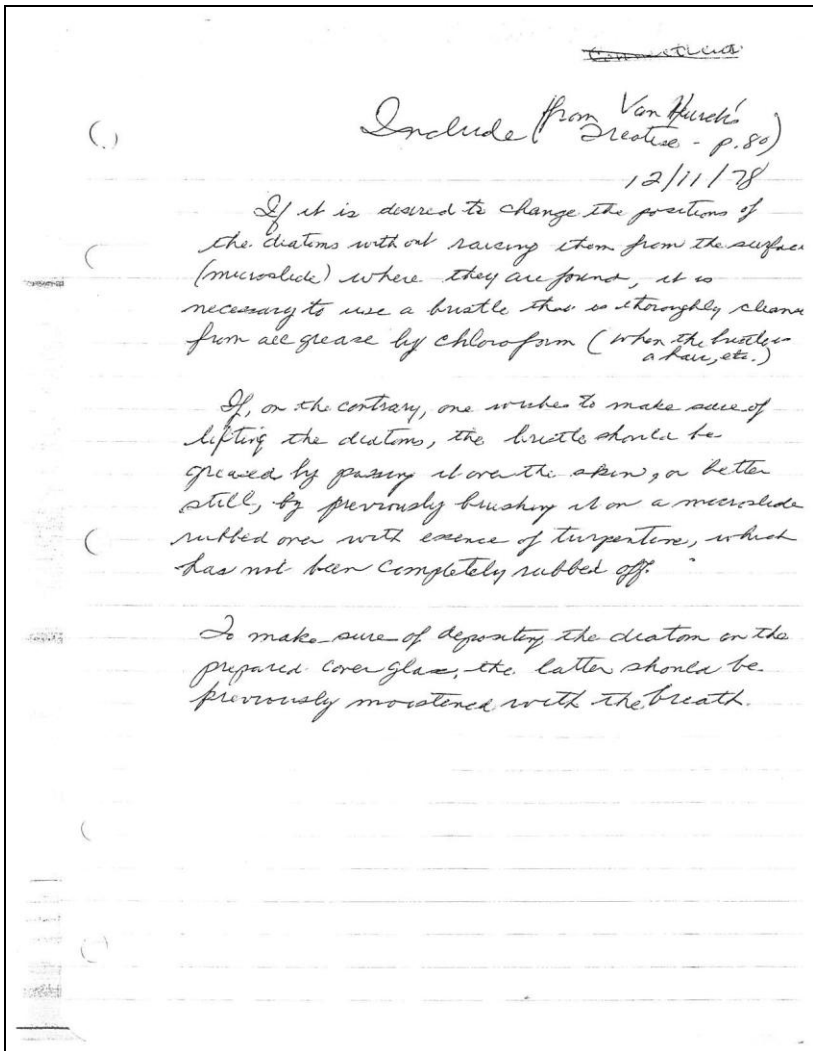 Include (from Van Hurck's
Treatise - p. 80)
12/11/78
If it is desired to change the positions of
the diatoms without raising them from the surface
(microslide) where they are found, it is
necessary to use a bristle that is thoroughly cleane
from all grease by chloroform (when the bristle is
a hair, etc.)
If, on the contrary, one wishes to make sure of
lifting the diatoms, the bristle should be
greased by passing it over the skin, or better
still, by previously brushing it on a microslide
rubbed over with essence of turpentine, which
has not been completely rubbed off.
To make sure of depositing the diatom on the
prepared cover glass, the latter should be
previously moistened with the breath.